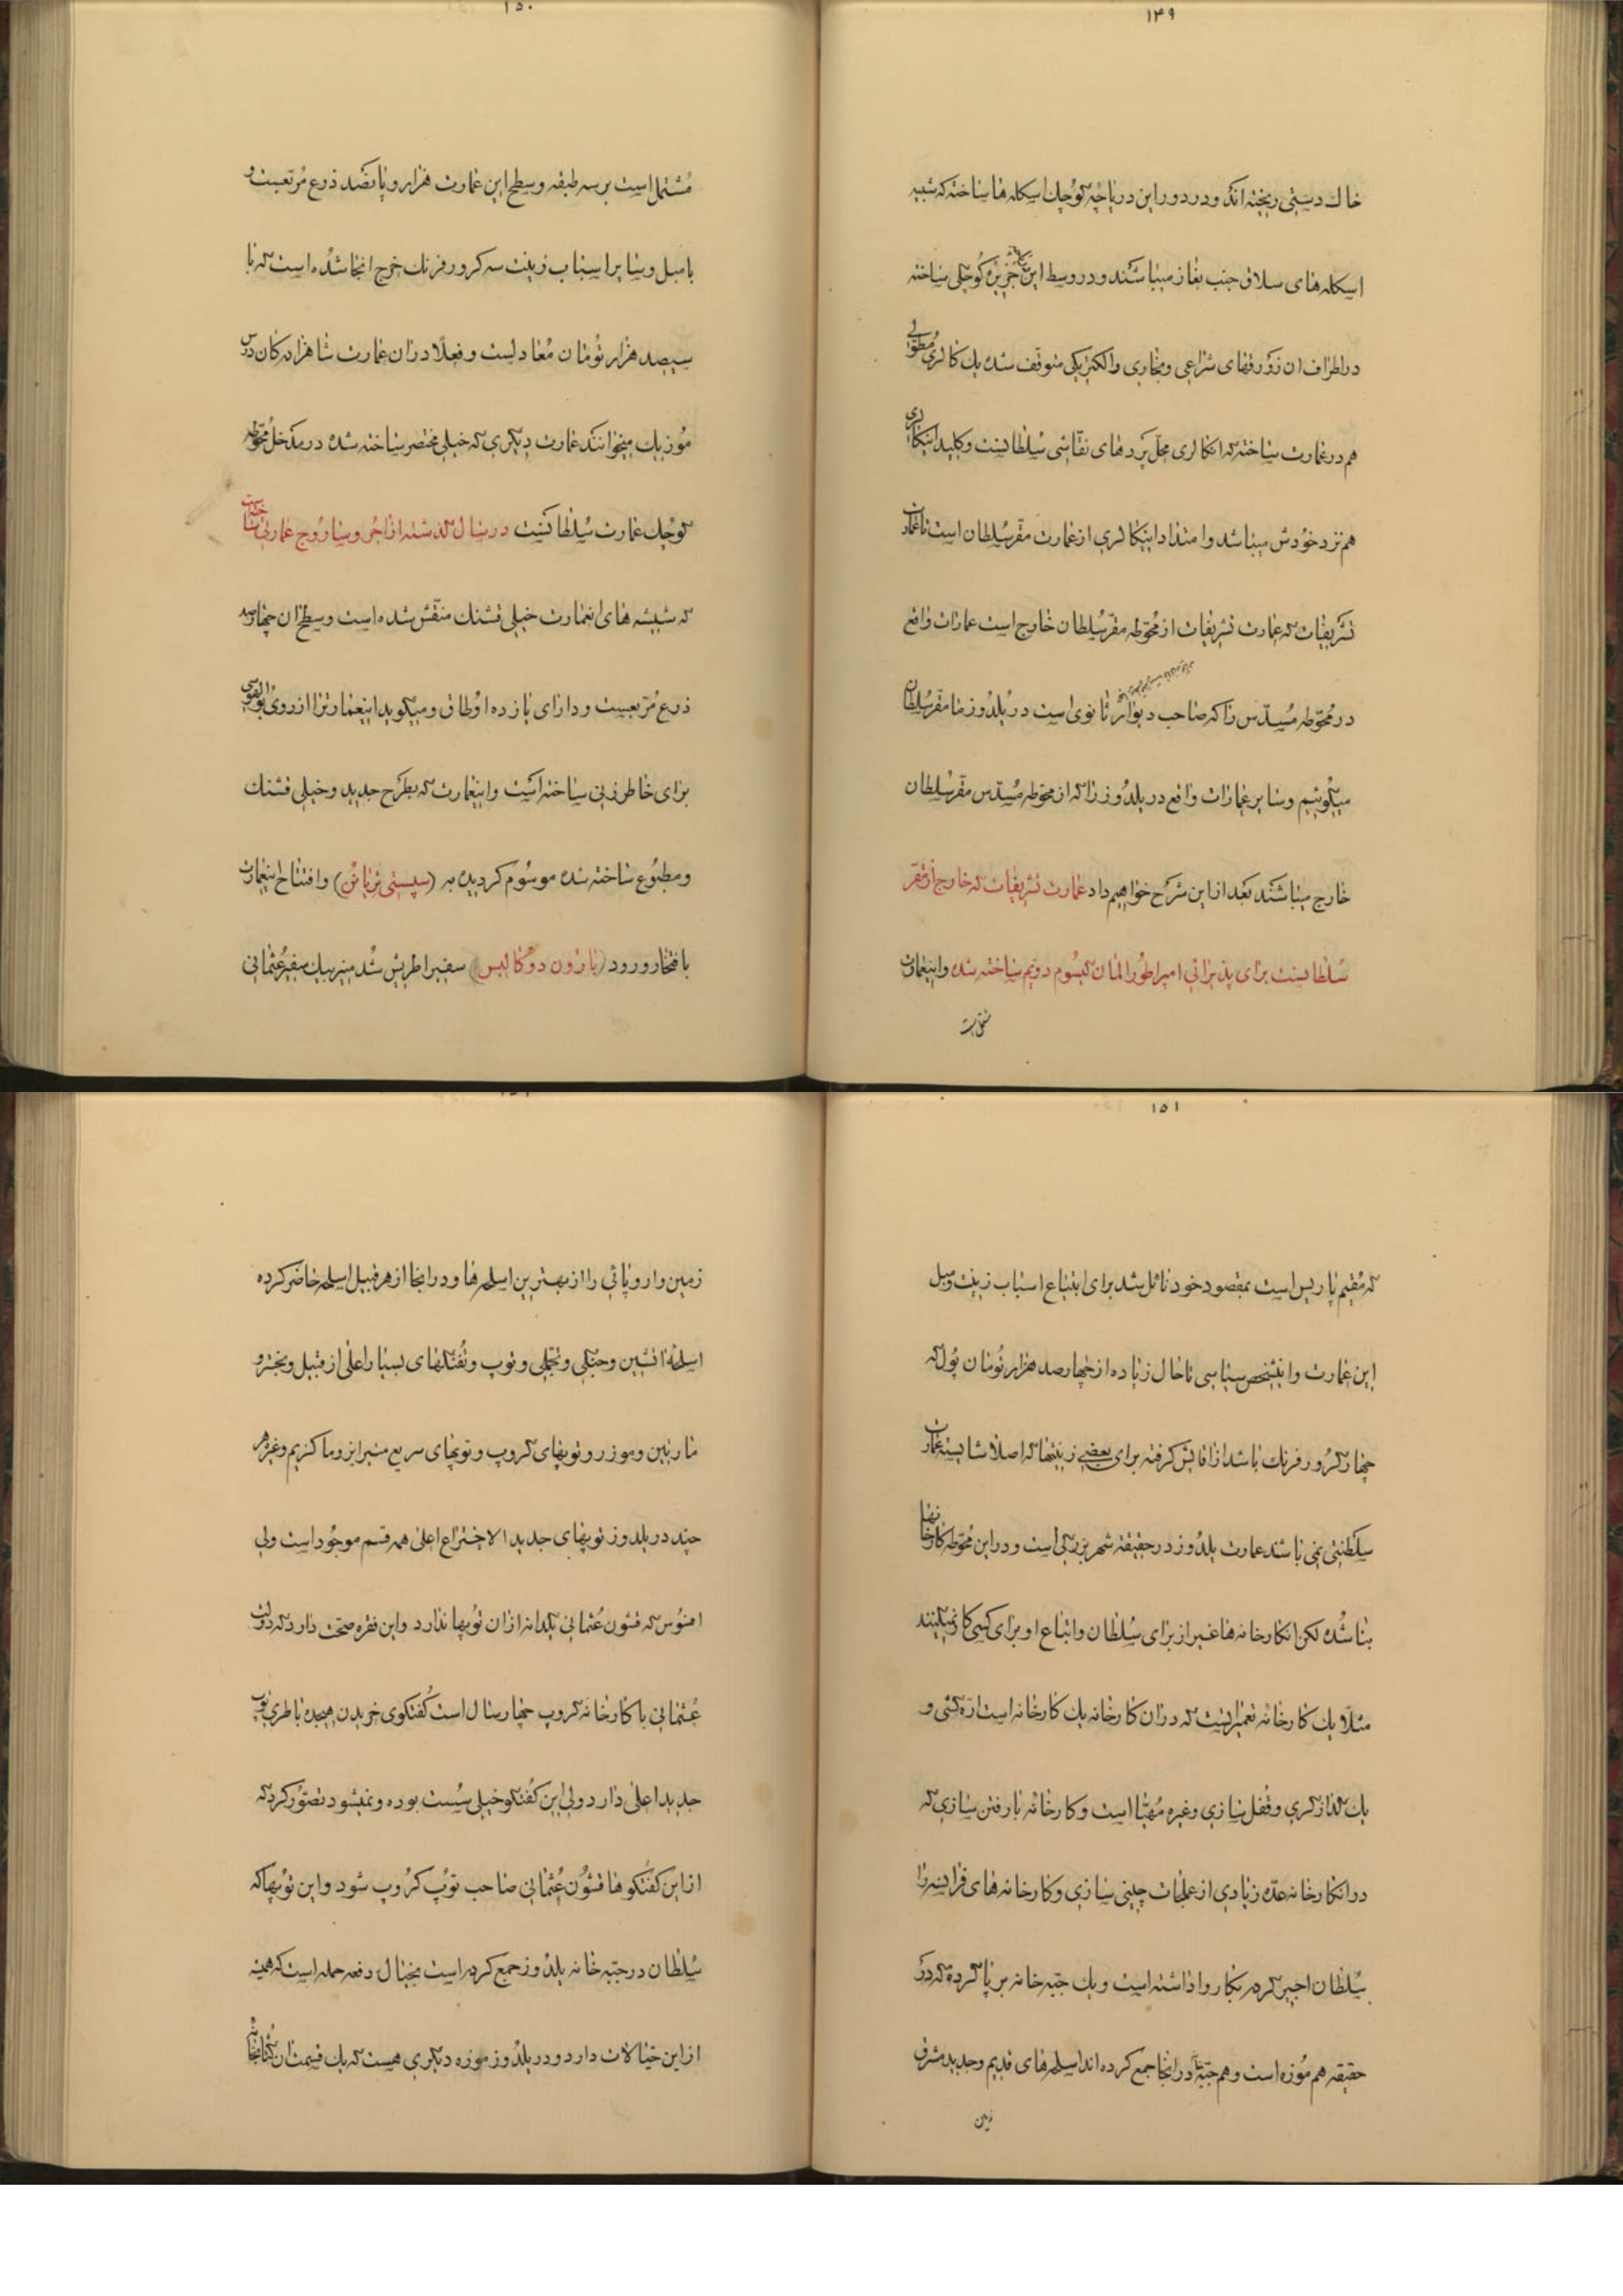 ۱۴۹
خاک دستی ریخته‌اند و در دور این دریاچه کوچک اسکله‌ها ساخته که شبیه
اسکله‌های سلاق جنب بغاز میباشند و در وسط این جزیره کوچکی ساخته
در اطراف آن زورقهای شراعی و بخاری و الکتریکی متوقف شده یک کالری مطولی
هم در عمارت ساخته که آنکالری محل پرده‌های نقاشی سلطانست و کلید اینکالری
هم نزد خودش میباشد و امتداد اینکالری از عمارت مقر سلطان است تا عمارت
تشریفات که عمارت تشریفات از محوطه مقر سلطان خارج است عمارات واقع
در محوطه مسدس را که صاحب دیوار ثانوی است در یلدوز ما مقر سلطان
میگوئیم و سایر عمارات واقع در یلدوز را که از محوطه مسدس مقر سلطان
خارج میباشند بعد از این شرح خواهیم داد عمارت تشریفات که خارج از مقر
سلطانست برای پذیرائی امپراطور المان کیسوم دویم ساخته شده و اینعمارت
مشتمل است
۱۵۰
مشتمل است بر سه طبقه و سطح این عمارت هزار و پانصد ذرع مربعست و
با مبل و سایر اسباب زینت سه کرور فرنک خرج انجا شده است که با
سیصد هزار تومان معادلست و فعلا در ان عمارت شاهزادکان درس
موزیک میخوانند عمارت دیگری که خیلی مختصر ساخته شده در مدخل محوطه
کوچک عمارت سلطانست در سال گذشته از اجر و ساروج عمارتی ساخته است
که شیشه‌های انعمارت خیلی قشنک منقش شده است و سطح ان چهارصد
ذرع مربعست و دارای یازده اوطاق و میگوید اینعمارترا از روی
برای خاطر زنی ساخته است و اینعمارت که بطرح جدید و خیلی قشنک
و مطبوع ساخته شده موسوم کردیده به (سپستی تریانن) و افتتاح اینعمارت
با فتخار ورود (بارون دو کالیس) سفیر اطریش شد منیر بیک سفیر عثمانی
۱۵۱
که مقیم پاریس است بمقصود خود نائل شد برای ابتیاع اسباب زینت و مبل
این عمارت و اینشخص سیاسی تا حال زیاده از چهارصد هزار تومان پول که
چهار کرور فرنک باشد از اقایش کرفته برای بعضی زینتها که اصلا شایسته عمارت
سلطنتی نمی باشد عمارت یلدوز در حقیقه شهر بزرگی است و در این محوطه کارخانها
بنا شده لکن انکارخانه‌ها غیر از برای سلطان و اتباع او برای کسی کار نمیکنند
مثلا یک کارخانه تعمیراتست که در ان کارخانه یک کارخانه است ازه کشی و
یک گذار گری و قفل سازی و غیره مهیا است و کارخانه بارفتن سازی که
در انکارخانه عده زیادی از عملجات چینی سازی و کارخانه‌های فرانسه را
سلطان اجیر کرده بکار وا داشته است و یک جبه خانه بر پا کرده که در
حقیقه هم موزه است و هم جبه خانه در انجا جمع کرده‌اند اسلحه‌های قدیم و جدید مشرق
زمین
زمین و اروپائی را از بهترین اسلحه‌ها و در انجا از هر قبیل اسلحه حاضر کرده
اسلحه آتشین و جنگی و تجملی و توپ و تفنگهای بسیار اعلی از قبیل وینچتر و
مارتین و موزر و توپهای کروپ و توپهای سریع منیرانز و ماکزیم و غیره هر
چند در یلدوز توپهای جدید الاختراع اعلی همه قسم موجود است ولی
افسوس که قشون عثمانی یکدانه از ان توپها ندارد و این فقره صحت دارد که دولت
عثمانی با کارخانه کروپ چهار سال است گفتگوی خریدن هیجده باطری توپ
جدید اعلی دارد ولی این گفتگو خیلی سست بوده و نمیشود تصور کرد که
از این گفتگوها قشون عثمانی صاحب توپ کروپ شود و این توپها که
سلطان در جبه خانه یلدوز جمع کرده است بخیال دفعه حمله است که همیشه
از این خیالات دارد و در یلدوز موزه دیگری هست که یک قسمت ان کتابخانه